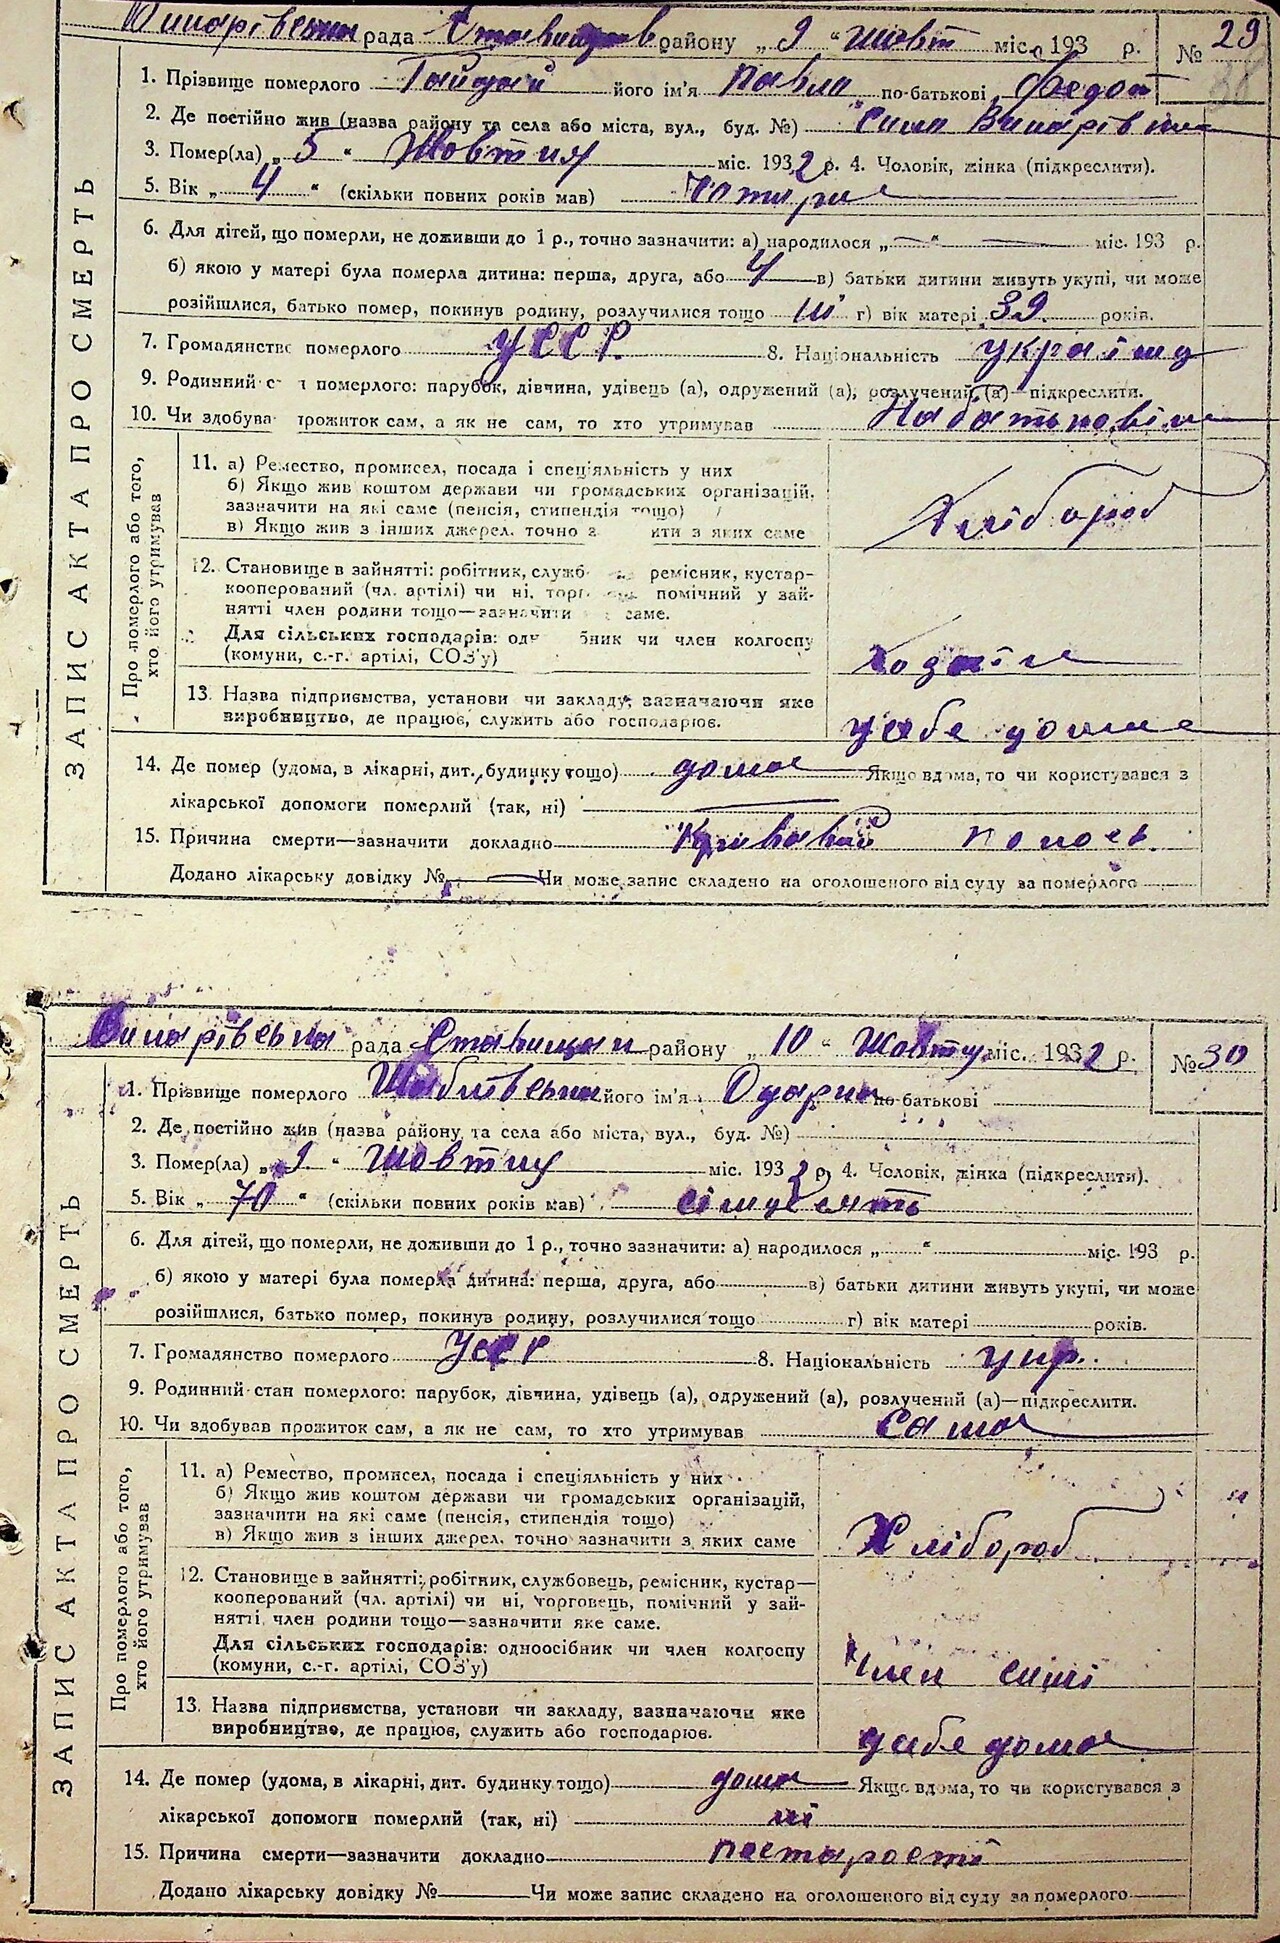 Винарівська рада Ставищан району „ 9 “ жовт міс. 193 р. № 29
38
1. Прізвище померлого його ім'я Павло по-батькові Федот
2. Де постійно жив (назва району та села або міста, вул., буд. №) Село Винарівка
3. Помер(ла) „ 5 “ Жовтня міс. 1932 р. 4. Чоловік, жінка (підкреслити).
5. Вік „ 4 “ (скільки повних років мав) Чотири
6. Для дітей, що померли, не доживши до 1 р., точно зазначити: а) народилося „ — “ — міс. 193 р.
б) якою у матері була померла дитина: перша, друга, або 4 в) батьки дитини живуть укупі, чи може
розійшлися, батько помер, покинув родину, розлучилися тощо г) вік матері 39 років.
7. Громадянство померлого УССР. 8. Національність україец
9. Родинний с н померлого: парубок, дівчина, удівець (а), одружений (а), розлучений (а)—підкреслити.
10. Чи здобува прожиток сам, а як не сам, то хто утримував На батькові
ЗАПИС АКТА ПРО СМЕРТЬ
Про померлого або того, хто його утримував
11. а) Ремество, промисел, посада і спеціяльність у них
б) Якщо жив коштом держави чи громадських організацій,
зазначити на які саме (пенсія, стипендія тощо)
в) Якщо жив з інших джерел, точно з ити з яких саме
Хлібороб
12. Становище в зайнятті: робітник, служб ремісник, кустар-
кооперований (чл. артілі) чи ні, торг помічний у зай-
нятті член родини тощо—зазначити саме.
Для сільських господарів: од бник чи член колгоспу
(комуни, с.-г. артілі, СОЗ'у)
Хозяїн
13. Назва підприємства, установи чи закладу, зазначаючи яке
виробництво, де працює, служить або господарює.
у себе дома
14. Де помер (удома, в лікарні, дит. будинку тощо) дома Якщо вдома, то чи користувався з
лікарської допомоги померлий (так, ні) —
15. Причина смерти—зазначити докладно Кривавий понос
Додано лікарську довідку № — Чи може запис складено на оголошеного від суду за померлого
Винарівська рада Ставищан району „ 10 “ Жовтня міс. 1932 р. № 30
1. Прізвище померлого Шаблівська його ім'я Одарка по-батькові
2. Де постійно жив (назва району та села або міста, вул., буд. №)
3. Помер(ла) „ 9 “ Жовтня міс. 1932 р. 4. Чоловік, жінка (підкреслити).
5. Вік „ 70 “ (скільки повних років мав) сімдесять
6. Для дітей, що померли, не доживши до 1 р., точно зазначити: а) народилося „ “ міс. 193 р.
б) якою у матері була померла дитина: перша, друга, або в) батьки дитини живуть укупі, чи може
розійшлися, батько помер, покинув родину, розлучилися тощо г) вік матері років.
7. Громадянство померлого УССР 8. Національність укр.
9. Родинний стан померлого: парубок, дівчина, удівець (а), одружений (а), розлучений (а)—підкреслити.
10. Чи здобував прожиток сам, а як не сам, то хто утримував сама
ЗАПИС АКТА ПРО СМЕРТЬ
Про померлого або того, хто його утримував
11. а) Ремество, промисел, посада і спеціяльність у них
б) Якщо жив коштом держави чи громадських організацій,
зазначити на які саме (пенсія, стипендія тощо)
в) Якщо жив з інших джерел, точно зазначити з яких саме
Хлібороб
12. Становище в зайнятті: робітник, службовець, ремісник, кустар—
кооперований (чл. артілі) чи ні, торговець, помічний у зай-
нятті, член родини тощо—зазначити яке саме.
Для сільських господарів: одноосібник чи член колгоспу
(комуни, с.-г. артілі, СОЗ'у)
член сімї
13. Назва підприємства, установи чи закладу, зазначаючи яке
виробництво, де працює, служить або господарює.
у себе дома
14. Де помер (удома, в лікарні, дит. будинку тощо) дома Якщо вдома, то чи користувався з
лікарської допомоги померлий (так, ні) ні
15. Причина смерти—зазначити докладно по старості
Додано лікарську довідку № Чи може запис складено на оголошеного від суду за померлого